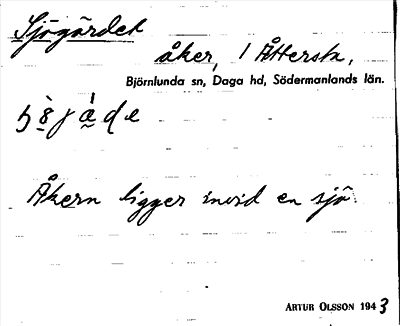 Sjögärdet
åker, 1 Åttersta,
Björnlunda sn, Daga hd, Södermanlands län.
Åkern ligger invid en sjö
ARTUR OLSSON 1943